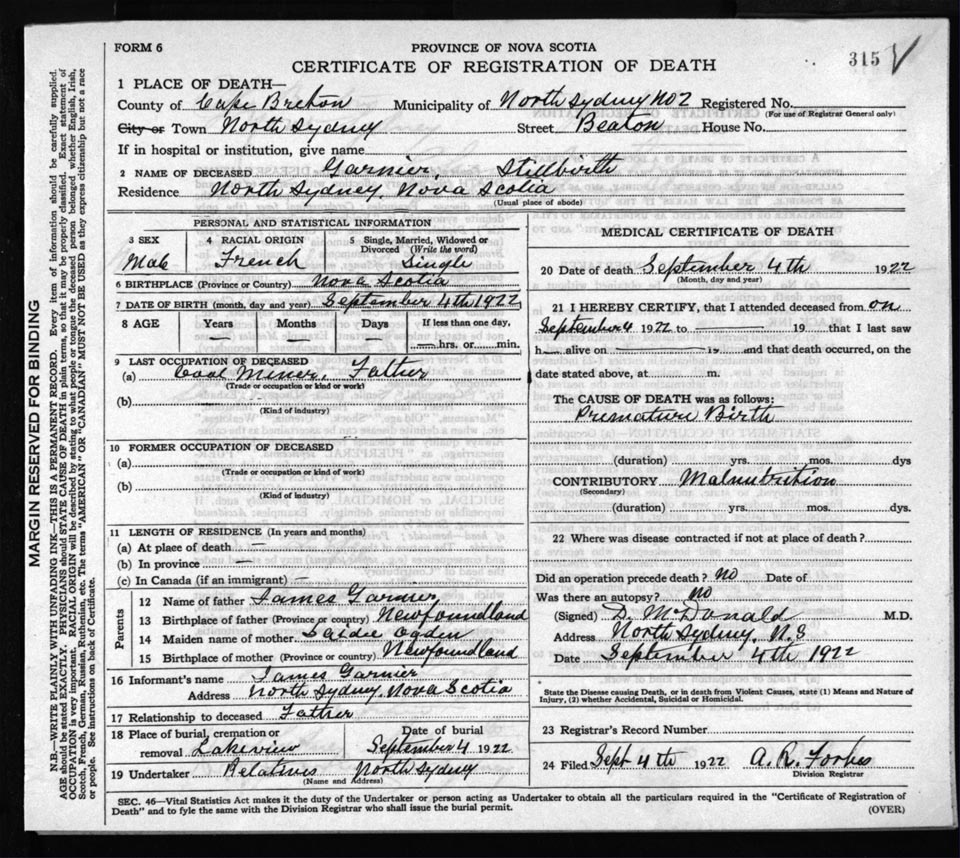 FORM 6
PROVINCE OF NOVA SCOTIA
CERTIFICATE OF REGISTRATION OF DEATH
315
1 PLACE OF DEATH—
County of Cape Breton Municipality of North Sydney No 2 Registered No.
(For use of Registrar General only)
City or Town North Sydney Street Beaton House No.
If in hospital or institution, give name
2 NAME OF DECEASED Garnier, Stillbirth
Residence North Sydney, Nova Scotia
(Usual place of abode)
PERSONAL AND STATISTICAL INFORMATION
3 SEX
Male
4 RACIAL ORIGIN
French
5 Single, Married, Widowed or Divorced (Write the word)
Single
6 BIRTHPLACE (Province or Country) Nova Scotia
7 DATE OF BIRTH (month, day and year) September 4th 1922
8 AGE Years Months Days If less than one day,
— — — —hrs. or min.
9 LAST OCCUPATION OF DECEASED
(a) Coal Miner, Father
(Trade or occupation or kind of work)
(b)
(Kind of industry)
10 FORMER OCCUPATION OF DECEASED
(a)
(Trade or occupation or kind of work)
(b)
(Kind of industry)
11 LENGTH OF RESIDENCE (In years and months)
(a) At place of death —
(b) In province —
(c) In Canada (if an immigrant) —
Parents
12 Name of father James Garnier
13 Birthplace of father (Province or country) Newfoundland
14 Maiden name of mother Saidie Ogden
15 Birthplace of mother (Province or country) Newfoundland
16 Informant's name James Garnier
Address North Sydney, Nova Scotia
17 Relationship to deceased Father
18 Place of burial, cremation or
removal Lakeview September 4 1922
19 Undertaker Relatives North Sydney
(Name and Address)
MEDICAL CERTIFICATE OF DEATH
20 Date of death September 4th 1922
(Month, day and year)
21 I HEREBY CERTIFY, that I attended deceased from on
September 4 1922 to — 19 that I last saw
h— alive on — 19 and that death occurred, on the
date stated above, at m.
The CAUSE OF DEATH was as follows:
Premature Birth
(duration) yrs. mos. dys
CONTRIBUTORY Malnutrition
(Secondary)
(duration) yrs. mos. dys.
22 Where was disease contracted if not at place of death?
Did an operation precede death? No Date of
Was there an autopsy? No
(Signed) D. McDonald M.D.
Address North Sydney, N.S
Date September 4th 1922
State the Disease causing Death, or in death from Violent Causes, state (1) Means and Nature of
Injury, (2) whether Accidental, Suicidal or Homicidal.
23 Registrar's Record Number
24 Filed Sept 4th 1922 A. R. Forbes
Division Registrar
SEC. 46—Vital Statistics Act makes it the duty of the Undertaker or person acting as Undertaker to obtain all the particulars required in the "Certificate of Registration of
Death" and to fyle the same with the Division Registrar who shall issue the burial permit.
(OVER)
MARGIN RESERVED FOR BINDING
N.B.—WRITE PLAINLY WITH UNFADING INK—THIS IS A PERMANENT RECORD. Every item of information should be carefully supplied.
AGE should be stated EXACTLY. PHYSICIANS should STATE CAUSE OF DEATH in plain terms, so that it may be properly classified. Exact statement of
OCCUPATION is very important. RACIAL ORIGIN will be described by stating to what people or tongue the deceased person belonged whether English, Irish,
Scotch, French, German, Russian, Ruthenian, etc. The terms "AMERICAN" OR "CANADIAN" MUST NOT BE USED as they express citizenship but not a race
or people. See instructions on back of Certificate.